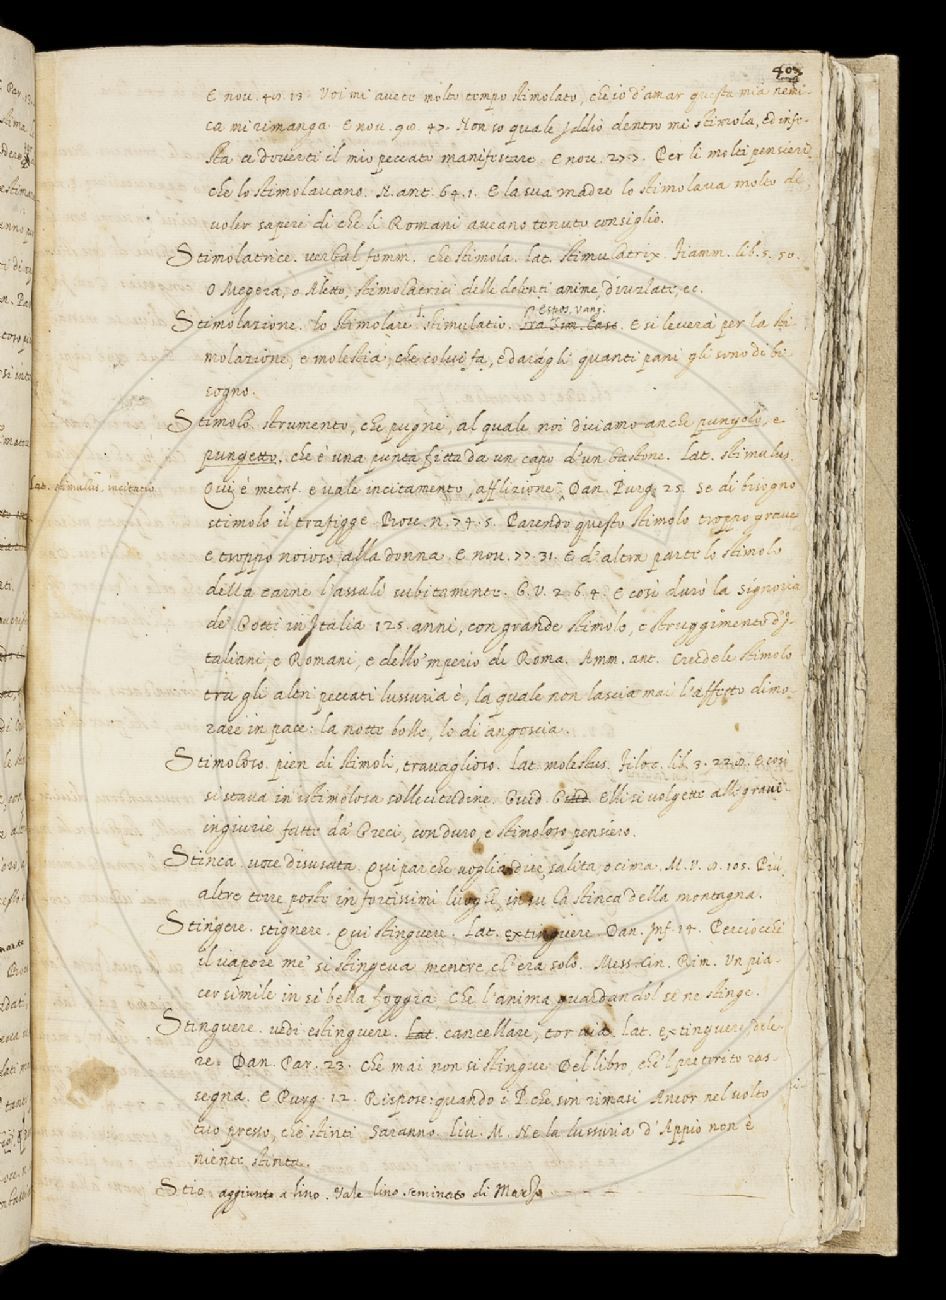 403
E nov. 40. 13. Voi mi avete molto tempo stimolato, che io d'amar questa mia nemi-
ca mi rimanga. E nov. 90. 47. Non so quale Iddio dentro mi stimola, ed infe-
sta a doverti il mio peccato manifestare. E nov. 27.7. Per li molti pensieri
che lo stimolavano. N. ant. 64. 1. E la sua madre lo stimolava molto di
voler sapere di che li Romani aveano tenuto consiglio.
Stimolatrice. verbal femm. che stimola. lat. stimulatrix. Fiamm. lib. 5. 50.
O Megera, o Aletto, stimolatrici delle dolenti anime, dirizzate, ec.
Espos. Vang.
Stimolazione. lo stimolare. stimulatio. Fra Sim. Casc. E si leverà per la sti
molazione, e molestia, che colui fa, e daràgli quanti pani gli sono di bi
sogno.
Stimolo strumento, che pugne, al quale noi diciamo anche pungolo, e
pungetto. che è una punta fitta da un capo d'un bastone. Lat. stimulus.
Lat. stimulus, incitatio
Qui è metaf. e vale incitamento, afflizione. Dan. Purg. 25. Se di bisogno
stimolo il trafigge. Bocc. n. 74. 5. Parendo questo stimolo troppo grave
e troppo noioso alla donna. E nov. 77. 31. E d'altra parte lo stimolo
della carne l'assalì subitamente. G. V. 2. 6. 4. E così durò la signoria
de' Gotti in Italia 125. anni, con grande stimolo, e struggimento d'I-
taliani, e Romani, e dello 'mperio di Roma. Amm. ant. Crudele stimolo
tra gli altri peccati lussuria è, la quale non lascia mai l'affetto dimo-
rare in pace: la notte bolle, lo dì angoscia.
Stimoloso. pien di stimoli, travaglioso. lat. molestus. Filoc. lib. 3. E così
si stava in istimolosa sollecitudine. Guid. Guid. Elli si volgette alle gravi
ingiurie fatte da' Greci, con duro, e stimoloso pensiero.
Stinca voce disusata. Qui par che voglia dire salita, o cima. M. V. 9. 105. Più
altre torre poste in fortissimi luoghi in su la stinca della montagna.
Stingere. stignere. Qui stinguere. Lat. extinguere. Dan. Inf. 14. Perciocchè
il vapore me' si stingeva mentre ch'era solo. Mess. Cin. Rim. Un pia-
cer simile in sì bella foggia, Che l'anima guardandol se ne stinge.
Stinguere. vedi estinguere. Lat. cancellare, tor via. lat. extinguere, dele-
re. Dan. Par. 23. che mai non si stingue Del libro, che 'l preterito ras-
segna. E Purg. 12. Rispose: quando i P. che son rimasi Ancor nel volto
tuo presso, che stinti Saranno. Liv. M. Ne la lussuria d'Appio non è
niente stinta.
Stio. aggiunto a lino. Vale lino seminato di Marzo